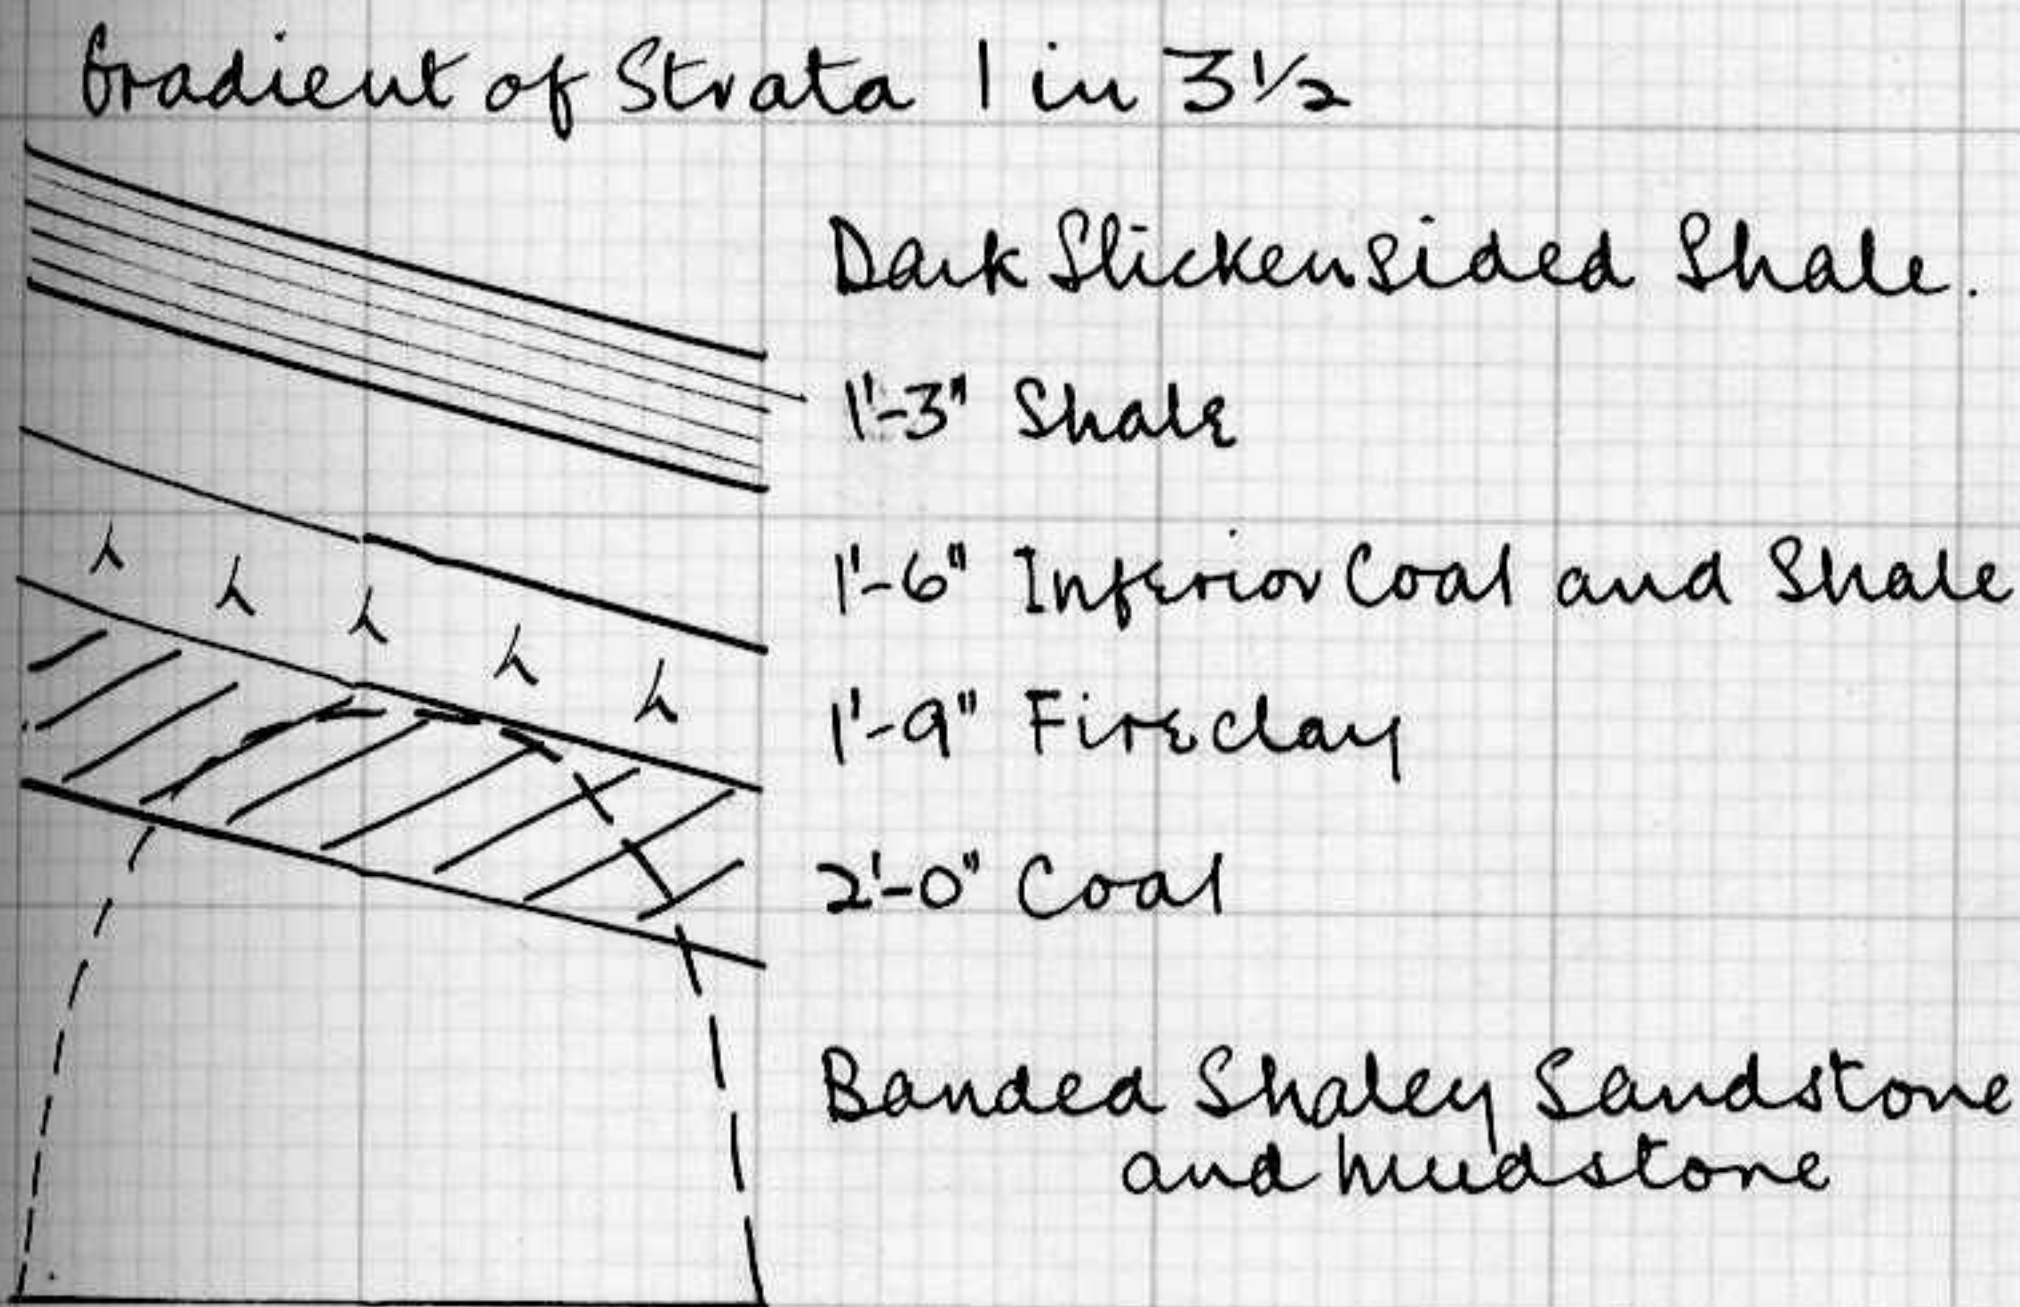 Gradient of Strata 1 in 3½
Dark Slickensided Shale.
1'-3" Shale
1'-6" Inferior Coal and Shale
1'-9" Fireclay
2'-0" Coal
Banded Shaley Sandstone
and Mudstone